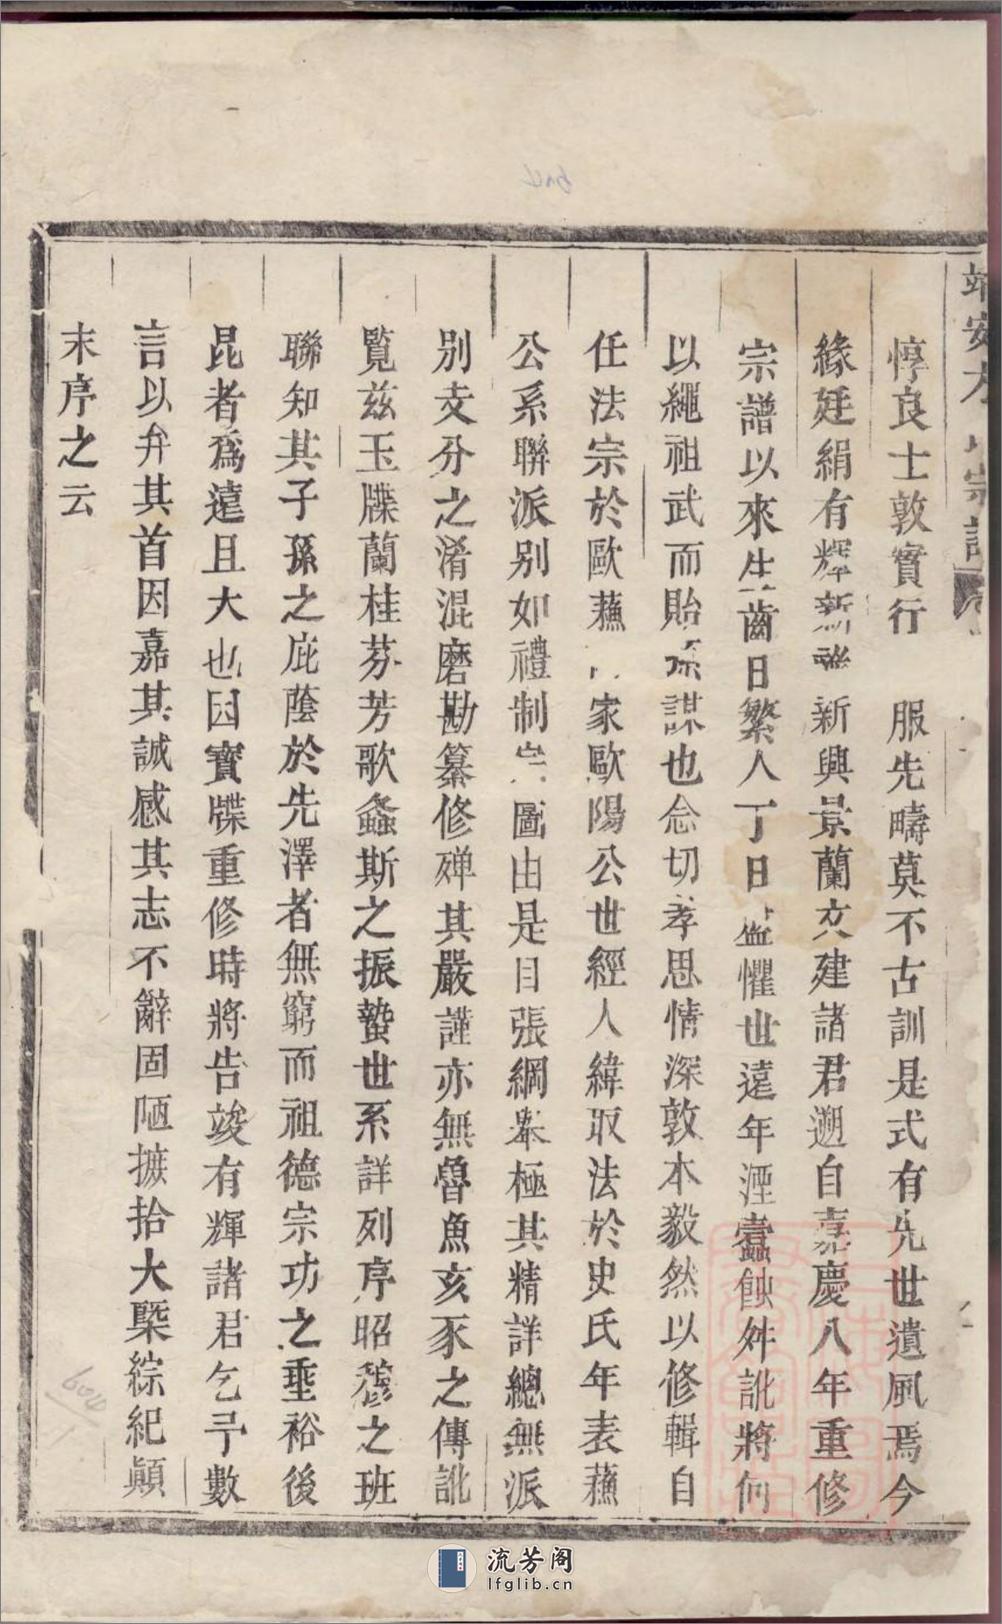 惇良士敦實行　服先疇莫不古訓是式有先世遺風焉今
緣廷絹有輝新　新興景蘭文建諸君遡自嘉慶八年重修
宗譜以來生齒日繁人丁日　懼世遠年湮蠧蝕舛訛將何
以繩祖武而貽孫謀也念切孝思情深敦本毅然以修輯自
任法宗於歐蘓　家歐陽公世經人緯取法於史氏年表蘓
公系聯派別如禮制宗圖由是目張綱舉極其精詳總無派
別支分之淆混磨勘纂修殫其嚴謹亦無魯魚亥豕之傳訛
覧茲玉牒蘭桂芬芳歌螽斯之振蟄世系詳列序昭穆之班
聯知其子孫之庇蔭於先澤者無窮而祖德宗功之垂裕後
昆者爲遠且大也因寳牒重修時將告竣有輝諸君乞予數
言以弁其首因嘉其誠感其志不辭固陋摭拾大槩綜紀顛
末序之云
流芳阁
lfglib.cn